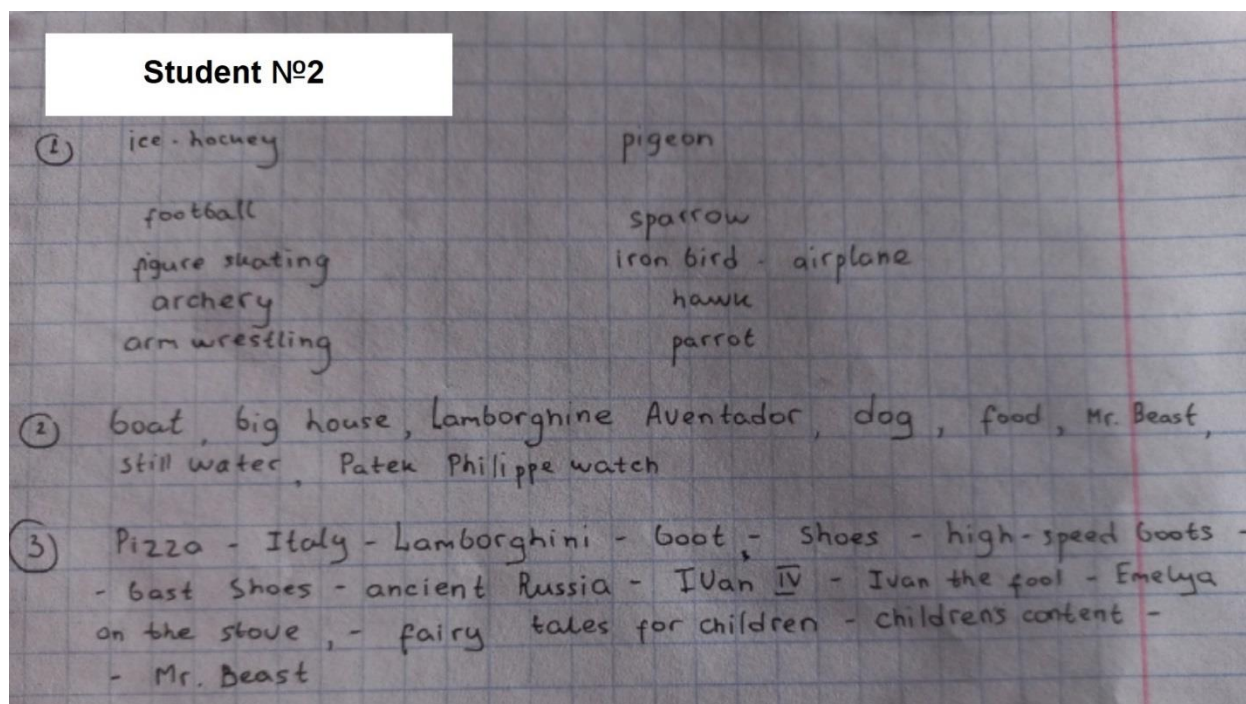 Student №2
① ice-hockey pigeon
football sparrow
figure skating iron bird - airplane
archery hawk
arm wrestling parrot
② boat, big house, Lamborghine Aventador, dog, food, Mr. Beast,
still water, Patek Philippe watch
③ Pizza - Italy - Lamborghini - boot, - shoes - high-speed boots -
- bast Shoes - ancient Russia - Ivan IV - Ivan the fool - Emelya
on the stove, - fairy tales for children - childrens content -
- Mr. Beast